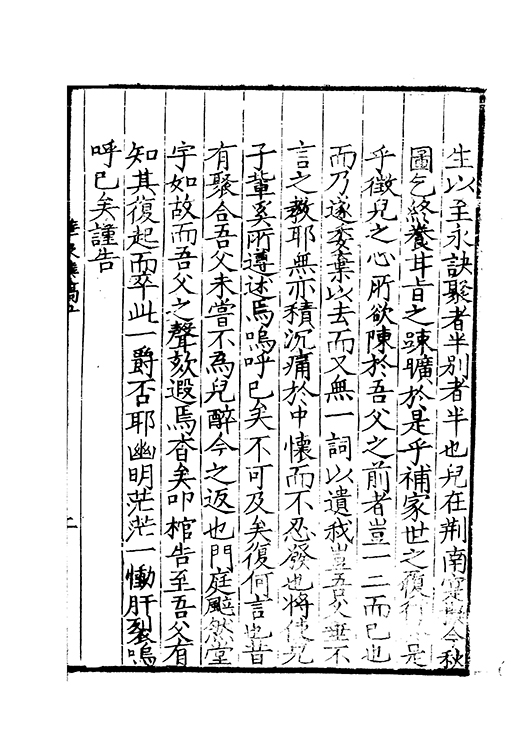 生以至永訣聚者半別者半也兒在荆南今秋
圖乞終養甘旨之踈曠於是乎補家世之復是
乎徵兒之心所欲陳於吾父之前者豈一二而已也
而乃遂委棄以去而又無一詞以遺我豈吾父垂不
言之教耶無亦積沉痛於中懷而不忍發也將使兒
子輩奚所遵述焉嗚呼已矣不可及矣復何言也昔
有聚合吾父未嘗不爲兒醉今之返也門庭颯然堂
宇如故而吾父之聲欬遐焉杳矣叩棺告至吾父有
知其復起而卒此一爵否耶幽明茫茫一慟肝裂嗚
呼已矣謹告
二